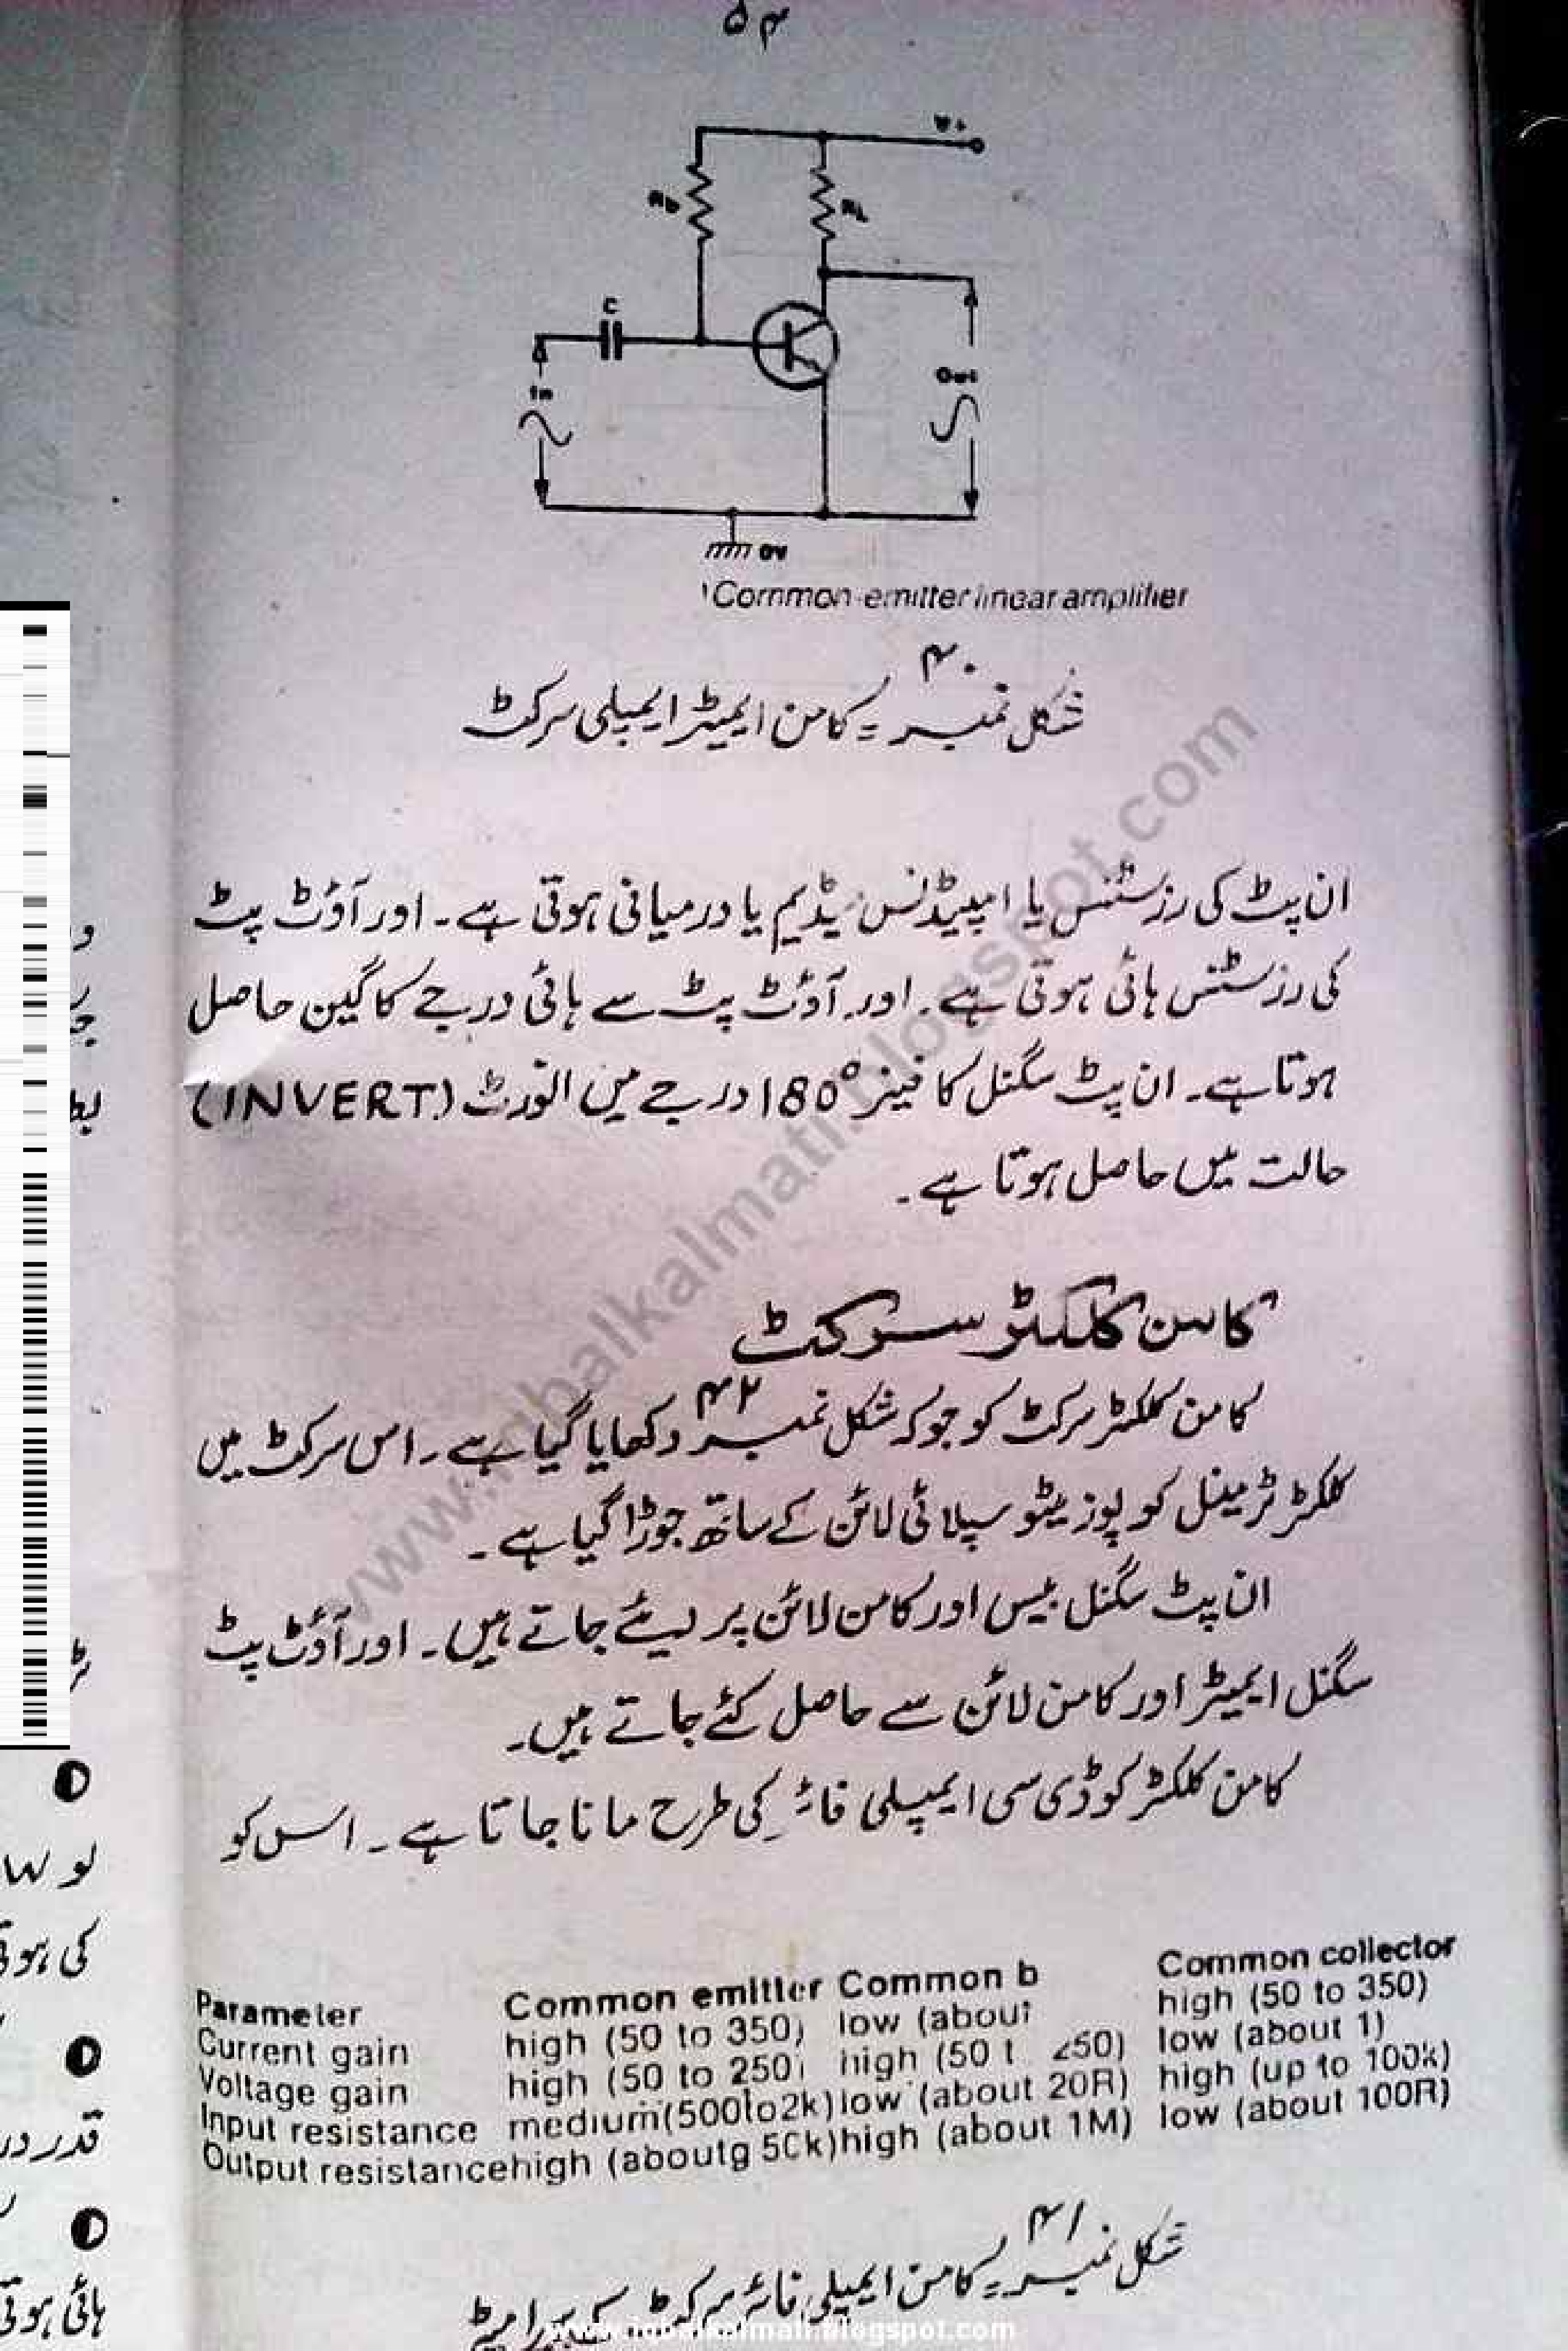 ۵۴
V+
Rb
RL
C
In
Out
0V
Common-emitter linear amplifier
شکل نمبر ۴۰ = کامن ایمیٹر ایمپلی سرکٹ
ان پٹ کی رزسٹنس یا امپیڈنس میڈیم یا درمیانی ہوتی ہے۔ اور آؤٹ پٹ
کی رزسٹنس ہائی ہوتی ہے۔ اور آؤٹ پٹ سے ہائی درجے کا گین حاصل
ہوتا ہے۔ ان پٹ سگنل کا فیز 180° درجے میں انورٹ (INVERT)
حالت میں حاصل ہوتا ہے۔
کامن کلکٹر سرکٹ
کامن کلکٹر سرکٹ کو جو کہ شکل نمبر ۴۲ دکھایا گیا ہے۔ اس سرکٹ میں
کلکٹر ٹرمینل کو پوزیٹو سپلائی لائن کے ساتھ جوڑا گیا ہے۔
ان پٹ سگنل بیس اور کامن لائن پر لیئے جاتے ہیں۔ اور آؤٹ پٹ
سگنل ایمیٹر اور کامن لائن سے حاصل کئے جاتے ہیں۔
کامن کلکٹر کو ڈی سی ایمپلی فائر کی طرح مانا جاتا ہے۔ اس کو
Parameter Common emitter Common b Common collector
Current gain high (50 to 350) low (about high (50 to 350)
Voltage gain high (50 to 250) high (50 t 250) low (about 1)
Input resistance medium (500to2k) low (about 20R) high (up to 100k)
Output resistance high (aboutg 50k) high (about 1M) low (about 100R)
شکل نمبر ۴۱ = کامن ایمپلی فائر سرکٹ کے پیرامیٹر
کی ہوتی
قدر در
ہائی ہوتی
www.iqbalkalmati.blogspot.com
www.iqbalkalmati.blogspot.com